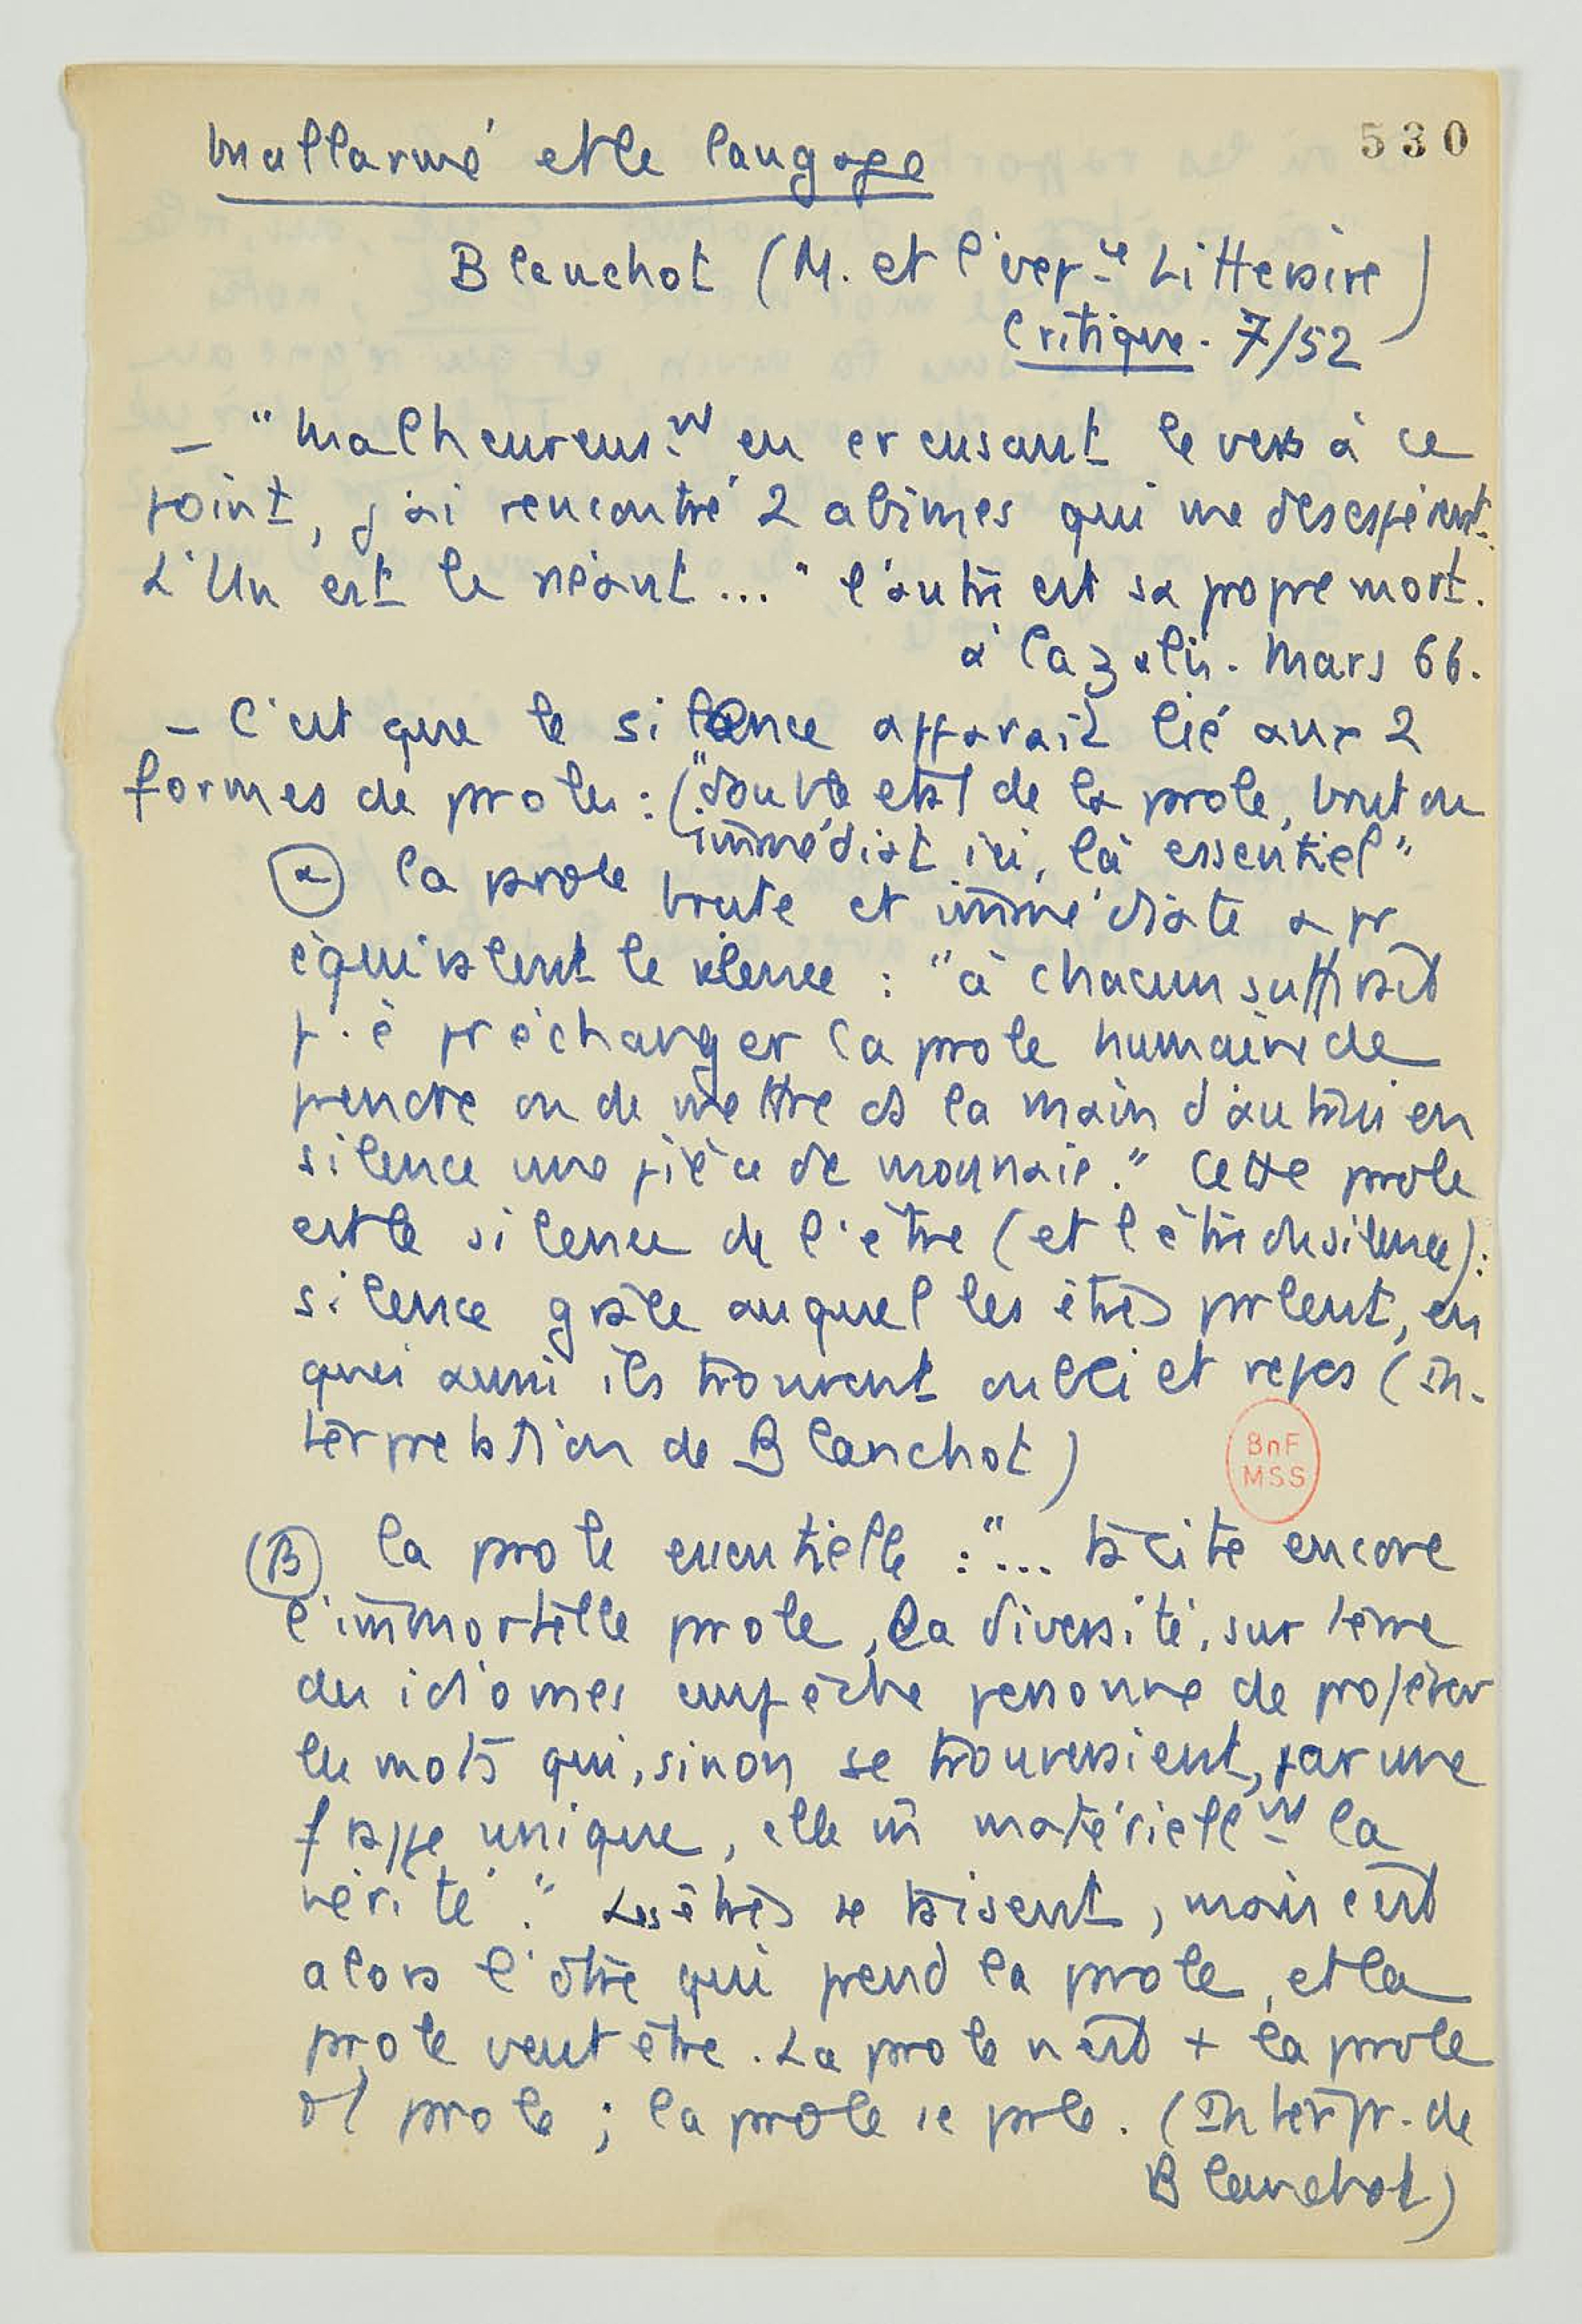 530
Mallarmé et le langage
Blanchot (M. et l'expce Littéraire)
Critique. 7/52
- "Malheureusmt en creusant le vers à ce
point, j'ai rencontré 2 abîmes qui me désespèrent.
L'Un est le néant..." l'autre est sa propre mort.
à Cazalis. Mars 66.
- C'est que le silence apparaît lié aux 2
formes de parole : ("double état de la parole, brut ou
immédiat ici, là essentiel"
α la parole brute et immédiate a pr
équivalent le silence : "à chacun suffirait
p.ê pr échanger la parole humaine de
prendre ou de mettre ds la main d'autrui en
silence une pièce de monnaie." Cette parole
est le silence de l'être (et l'être du silence):
silence grâce auquel les êtres parlent, en
quoi aussi ils trouvent oubli et repos (in-
terprétation de Blanchot)
BnF
MSS
(B) la parole essentielle : "... tacite encore
l'immortelle parole, la diversité, sur terre
des idiomes empêche personne de proférer
les mots qui, sinon se trouveraient, par une
frappe unique, elle m̂ matériellemt la
vérité." Les êtres se taisent, mais c'est
alors l'être qui prend la parole, et la
parole veut être. La parole n'est + la parole
d'1 parole ; la parole se parle. (Interpr. de
Blanchot)